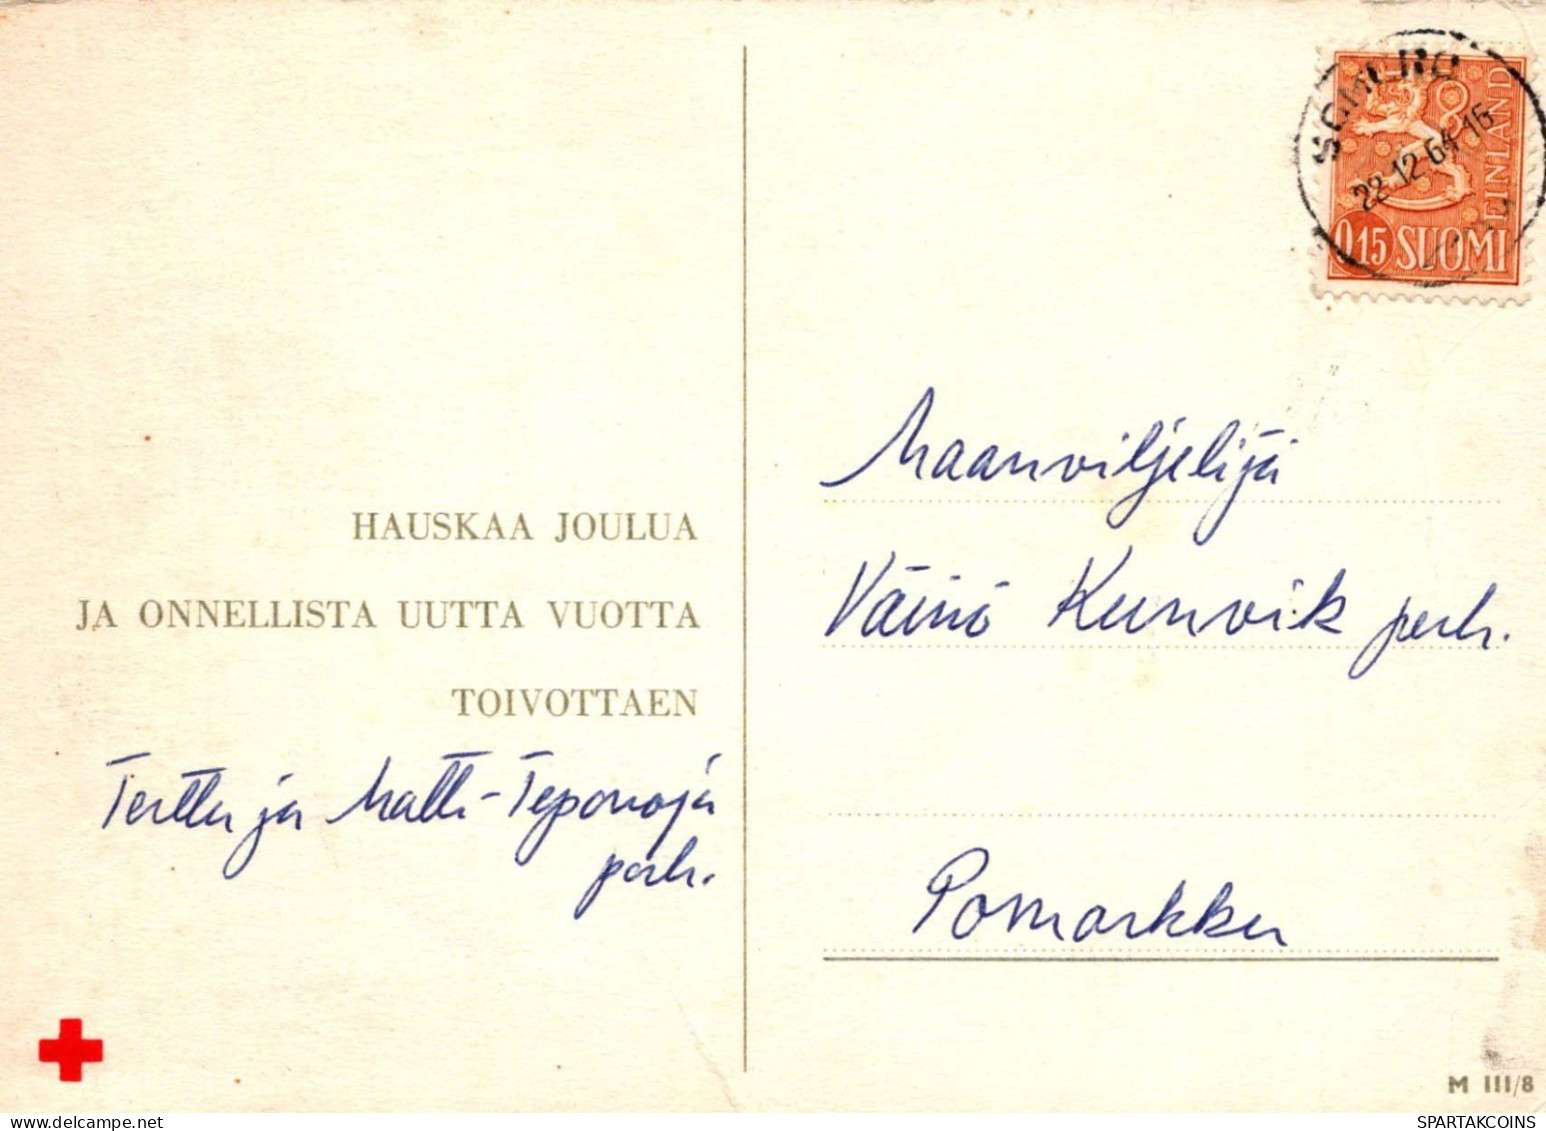 HAUSKAA JOULUA
JA ONNELLISTA UUTTA VUOTTA
TOIVOTTAEN
Terttu ja Matti Teponoja
perh.
SOMERO
22.12.64.16
FINLAND
0,15 SUOMI
Maanviljelijä
Väinö Kunvik perh.
Pomarkku
M III/8
SPARTAKCOINS